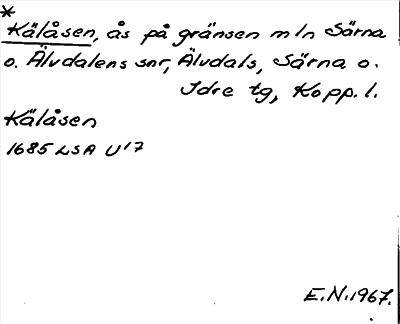 *
Kälåsen, ås på gränsen mln Särna
o. Älvdalens snr, Älvdals, Särna o.
Idre tg, Kopp. l.
Kälåsen
1685 LSA U'7
E.N. 1967.